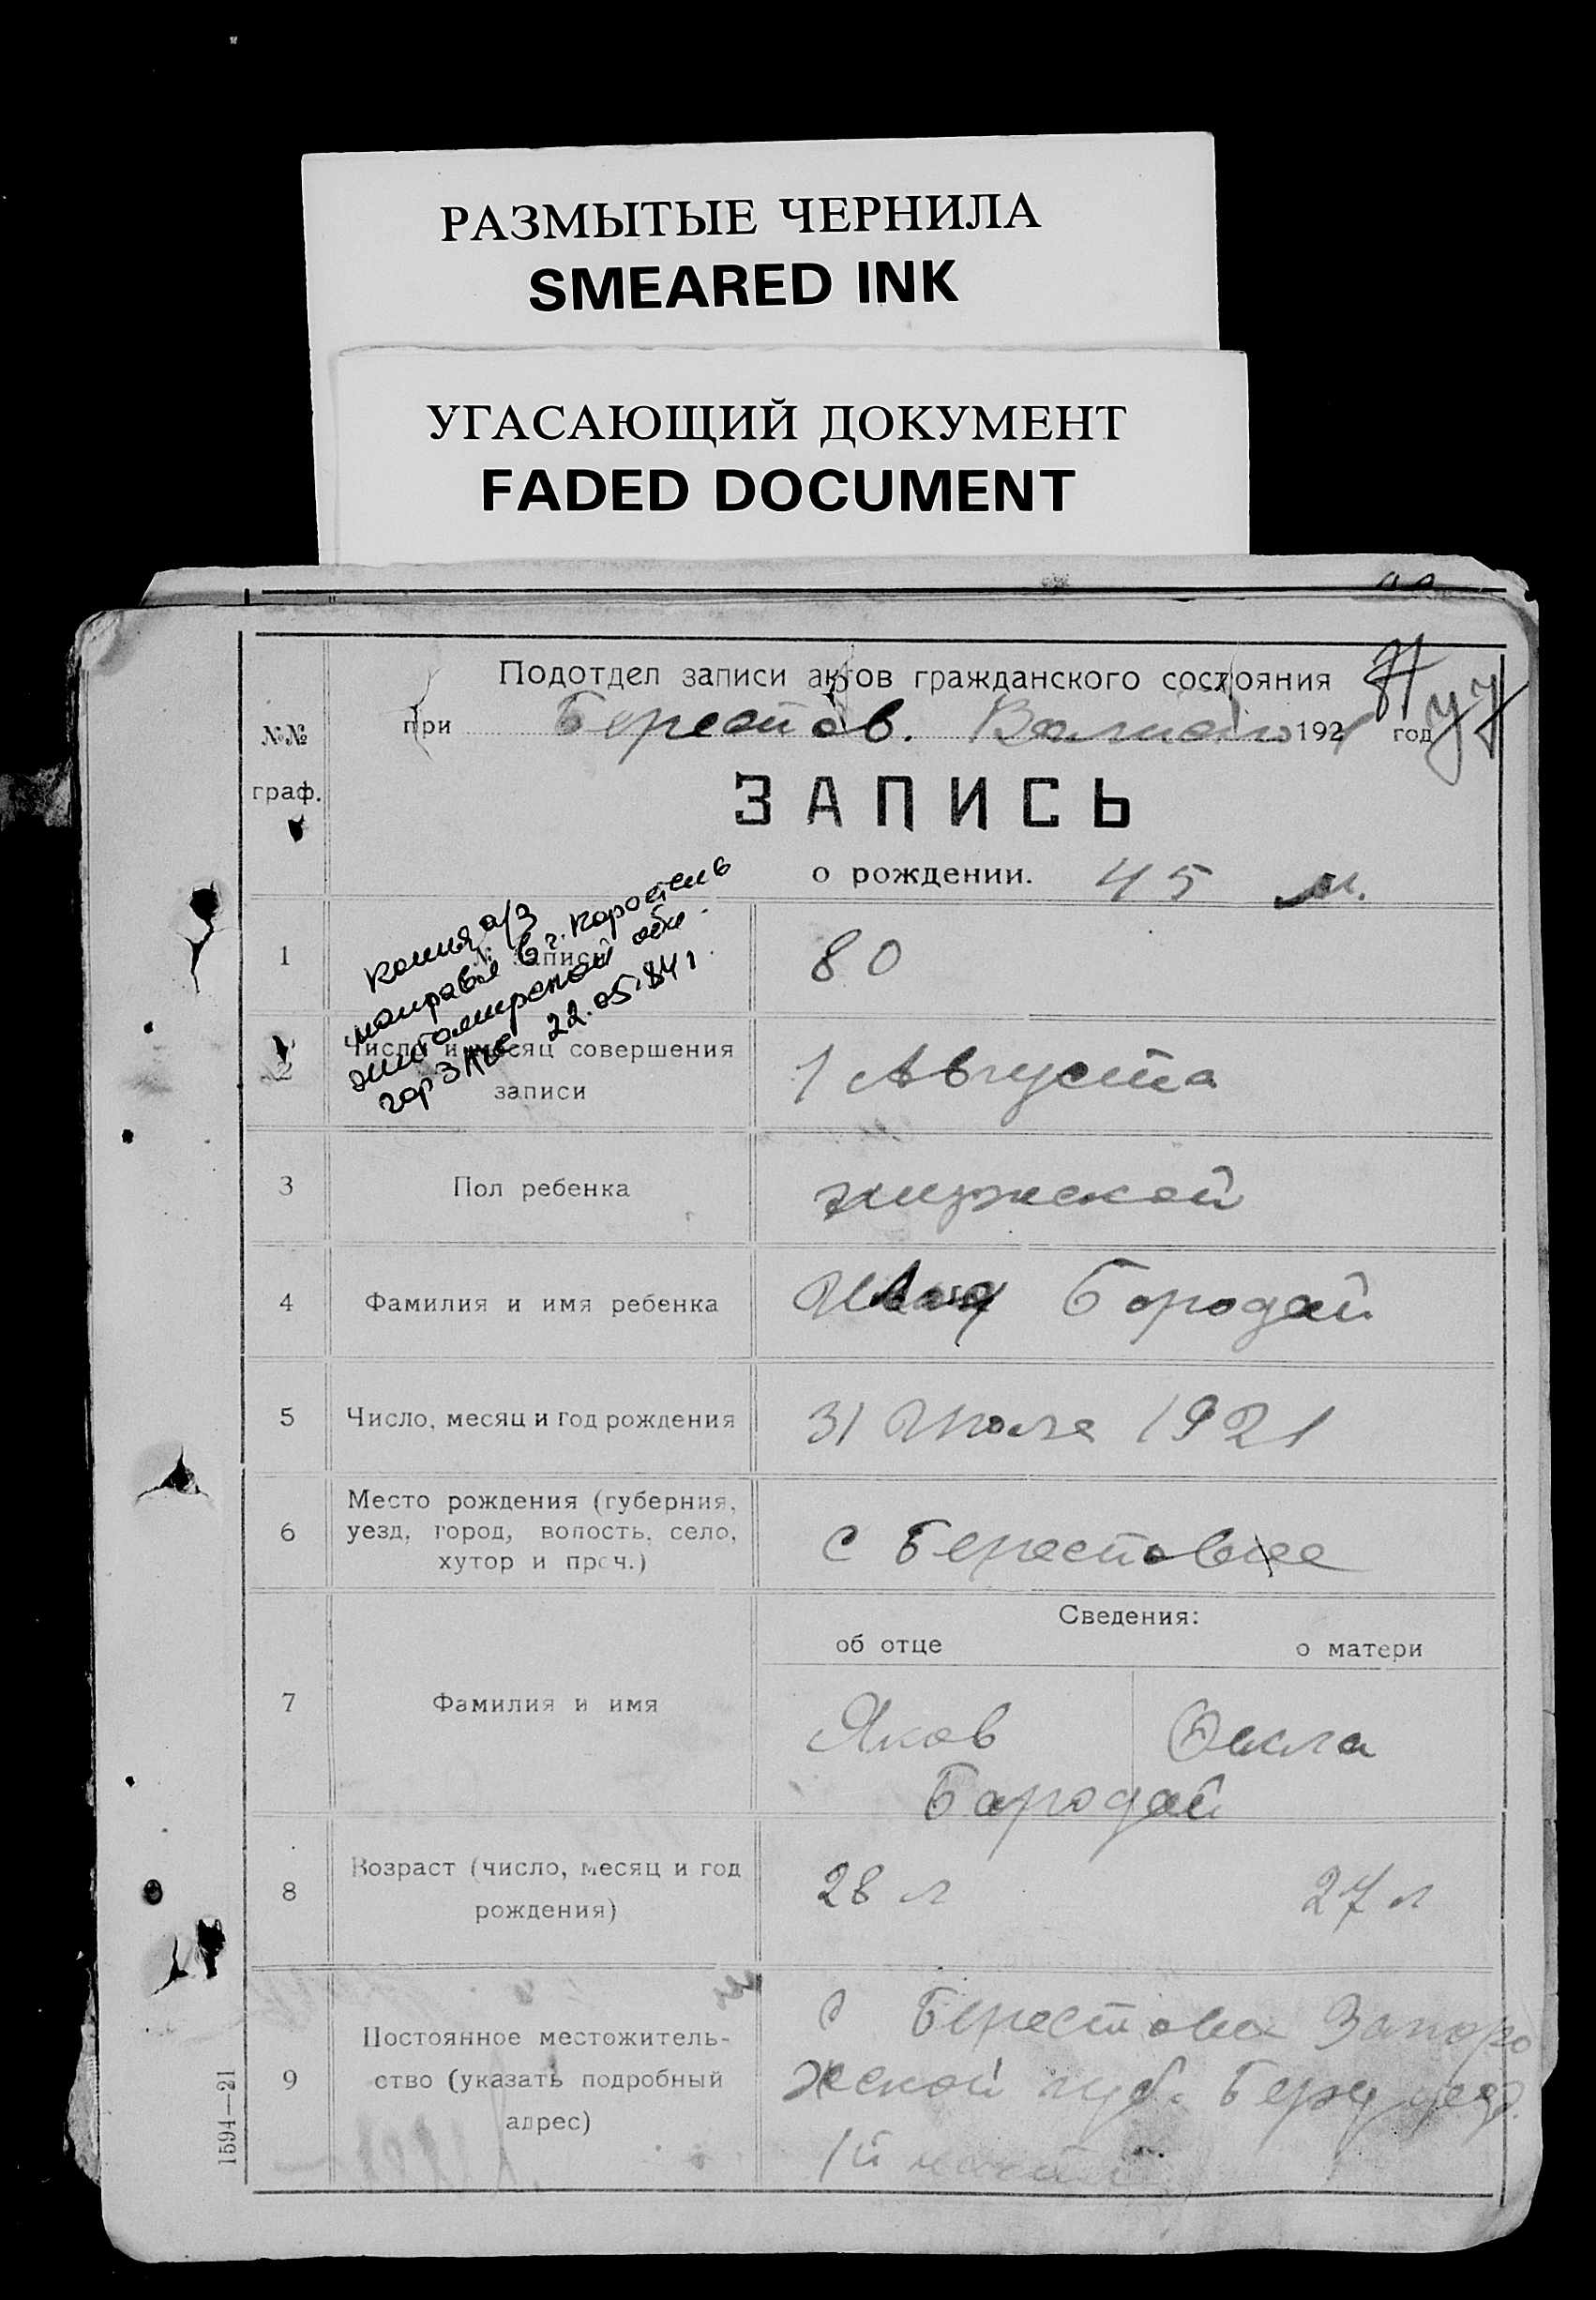 РАЗМЫТЫЕ ЧЕРНИЛА
SMEARED INK
УГАСАЮЩИЙ ДОКУМЕНТ
FADED DOCUMENT
Подотдел записи актов гражданского состояния
при Берестов. 1921 год
№№
граф.
ЗАПИСЬ
о рождении. 45 м.
копия а/з
направл в г. Коростень
житомирской обл.
горЗАГС 22.05.84 г
1 № записи 80
2 Число и месяц совершения
записи
1 Августа
3 Пол ребенка мужской
4 Фамилия и имя ребенка Бородай
5 Число, месяц и год рождения 31 Июля 1921
6 Место рождения (губерния,
уезд, город, волость, село,
хутор и проч.)
с Берестовое
Сведения:
об отце о матери
7 Фамилия и имя Яков Фекла
Бородай
8 Возраст (число, месяц и год
рождения)
28 л 27 л
9 Постоянное местожитель-
ство (указать подробный
адрес)
с Берестовое Запоро
жской губ. Берд уезд.
1594—21